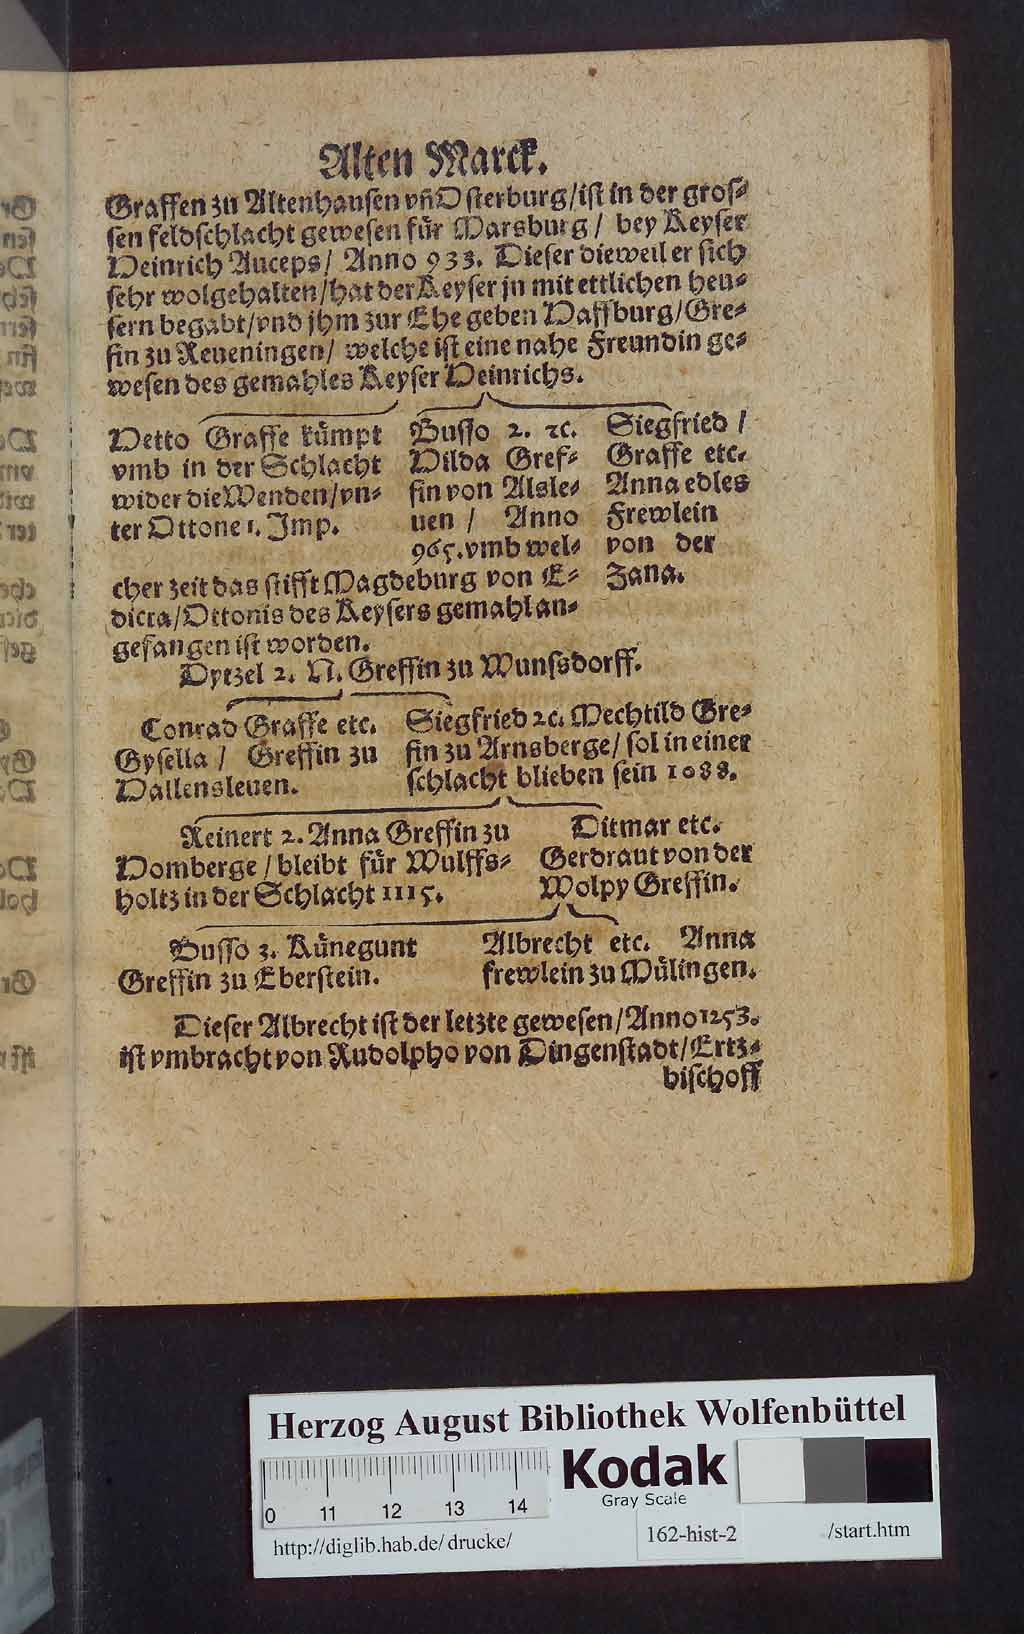 Alten Marck.
Graffen zu Altenhausen vñ Osterburg/ist in der gros⸗
sen feldschlacht gewesen für Marsburg / bey Keyser
Heinrich Auceps/ Anno 933. Dieser dieweil er sich
sehr wolgehalten/hat der Keyser jn mit ettlichen heu⸗
sern begabt/vnd jhm zur Ehe geben Haffburg/Gre⸗
fin zu Reueningen/ welche ist eine nahe Freundin ge⸗
wesen des gemahles Keyser Heinrichs.
Hetto Graffe kümpt
vmb in der Schlacht
wider die Wenden/vn⸗
ter Ottone 1. Imp.
Busso 2. ꝛc.
Hilda Gref⸗
fin von Alsle⸗
uen / Anno
965. vmb wel⸗
cher zeit das stifft Magdeburg von E⸗
dicta/Ottonis des Keysers gemahl an⸗
gefangen ist worden.
Siegfried /
Graffe etc.
Anna edles
Frewlein
von der
Jana.
Dytzel 2. N. Greffin zu Wunssdorff.
Conrad Graffe etc.
Gysella / Greffin zu
Hallensleuen.
Siegfried ꝛc. Mechtild Gre⸗
fin zu Arnsberge/ sol in einer
schlacht blieben sein 1088.
Reinert 2. Anna Greffin zu
Homberge / bleibt für Wulffs⸗
holtz in der Schlacht 1115.
Ditmar etc.
Gerdraut von der
Wolpy Greffin.
Busso 3. Künegunt
Greffin zu Eberstein.
Albrecht etc. Anna
frewlein zu Mülingen.
Dieser Albrecht ist der letzte gewesen/Anno 1253.
ist vmbracht von Rudolpho von Dingenstadt/Ertz⸗
bischoff
Herzog August Bibliothek Wolfenbüttel
Kodak
Gray Scale
0 11 12 13 14
http://diglib.hab.de/drucke/
162-hist-2
/start.htm